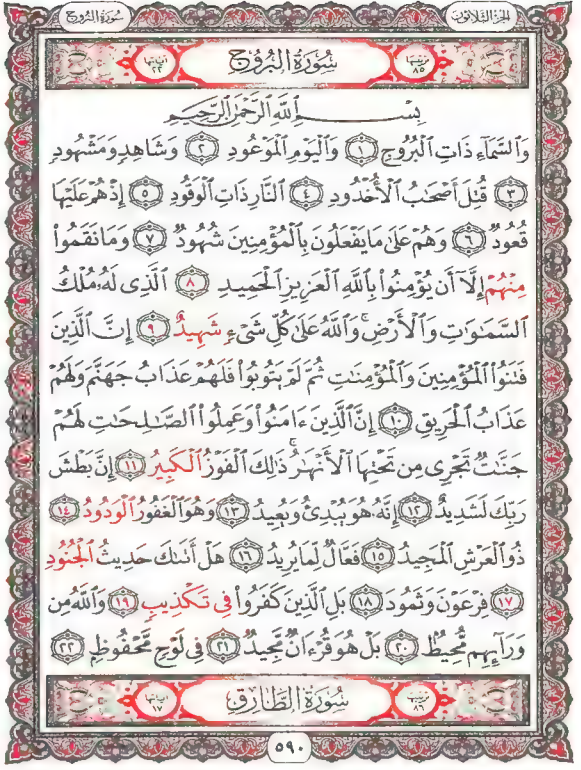 سُورَةُ البُرُوجِ
الجزء الثلاثون
سُورَةُ البُرُوجِ
ترتيبها ٨٥
آياتها ٢٢
بِسْمِ ٱللَّهِ ٱلرَّحْمَٰنِ ٱلرَّحِيمِ
وَٱلسَّمَآءِ ذَاتِ ٱلْبُرُوجِ ١ وَٱلْيَوْمِ ٱلْمَوْعُودِ ٢ وَشَاهِدٍ وَمَشْهُودٍ
٣ قُتِلَ أَصْحَٰبُ ٱلْأُخْدُودِ ٤ ٱلنَّارِ ذَاتِ ٱلْوَقُودِ ٥ إِذْ هُمْ عَلَيْهَا
قُعُودٌ ٦ وَهُمْ عَلَىٰ مَا يَفْعَلُونَ بِٱلْمُؤْمِنِينَ شُهُودٌ ٧ وَمَا نَقَمُوا۟
مِنْهُمْ إِلَّآ أَن يُؤْمِنُوا۟ بِٱللَّهِ ٱلْعَزِيزِ ٱلْحَمِيدِ ٨ ٱلَّذِى لَهُۥ مُلْكُ
ٱلسَّمَٰوَٰتِ وَٱلْأَرْضِ ۚ وَٱللَّهُ عَلَىٰ كُلِّ شَىْءٍ شَهِيدٌ ٩ إِنَّ ٱلَّذِينَ
فَتَنُوا۟ ٱلْمُؤْمِنِينَ وَٱلْمُؤْمِنَٰتِ ثُمَّ لَمْ يَتُوبُوا۟ فَلَهُمْ عَذَابُ جَهَنَّمَ وَلَهُمْ
عَذَابُ ٱلْحَرِيقِ ١٠ إِنَّ ٱلَّذِينَ ءَامَنُوا۟ وَعَمِلُوا۟ ٱلصَّٰلِحَٰتِ لَهُمْ
جَنَّٰتٌ تَجْرِى مِن تَحْتِهَا ٱلْأَنْهَٰرُ ۚ ذَٰلِكَ ٱلْفَوْزُ ٱلْكَبِيرُ ١١ إِنَّ بَطْشَ
رَبِّكَ لَشَدِيدٌ ١٢ إِنَّهُۥ هُوَ يُبْدِئُ وَيُعِيدُ ١٣ وَهُوَ ٱلْغَفُورُ ٱلْوَدُودُ ١٤
ذُو ٱلْعَرْشِ ٱلْمَجِيدُ ١٥ فَعَّالٌ لِّمَا يُرِيدُ ١٦ هَلْ أَتَىٰكَ حَدِيثُ ٱلْجُنُودِ
١٧ فِرْعَوْنَ وَثَمُودَ ١٨ بَلِ ٱلَّذِينَ كَفَرُوا۟ فِى تَكْذِيبٍ ١٩ وَٱللَّهُ مِن
وَرَآئِهِم مُّحِيطٌۢ ٢٠ بَلْ هُوَ قُرْءَانٌ مَّجِيدٌ ٢١ فِى لَوْحٍ مَّحْفُوظٍۭ ٢٢
ترتيبها ٨٦
سُورَةُ الطَّارِقِ
آياتها ١٧
٥٩٠